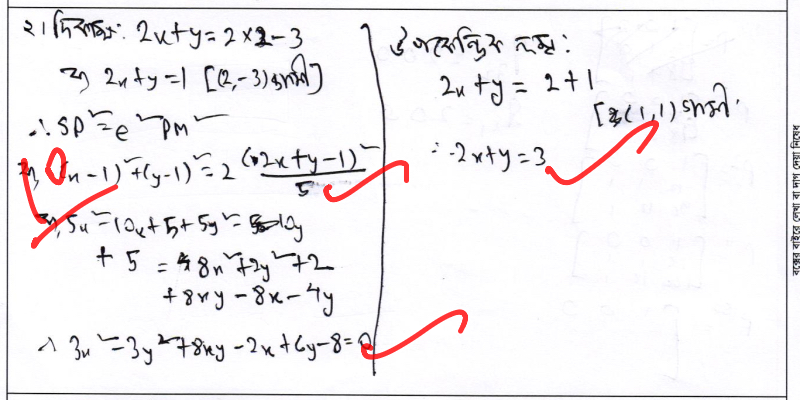 ২। দিকাক্ষ: 2x+y=2×2-3
বা, 2x+y=1 [(2,-3)গামী]
∴ SP²=e²PM²
বা, (x-1)²+(y-1)²=2 (2x+y-1)²/5
বা, 5x²-10x+5+5y²-10y
+5=8x²+2y²+2
+8xy-8x-4y
∴ 3x²-3y²+8xy-2x+6y-8=0
উপকেন্দ্রিক লম্ব:
2x+y=2+1
[(1,1)গামী]
∴ 2x+y=3
বক্সের বাইরে লেখা বা দাগ দেয়া নিষেধ